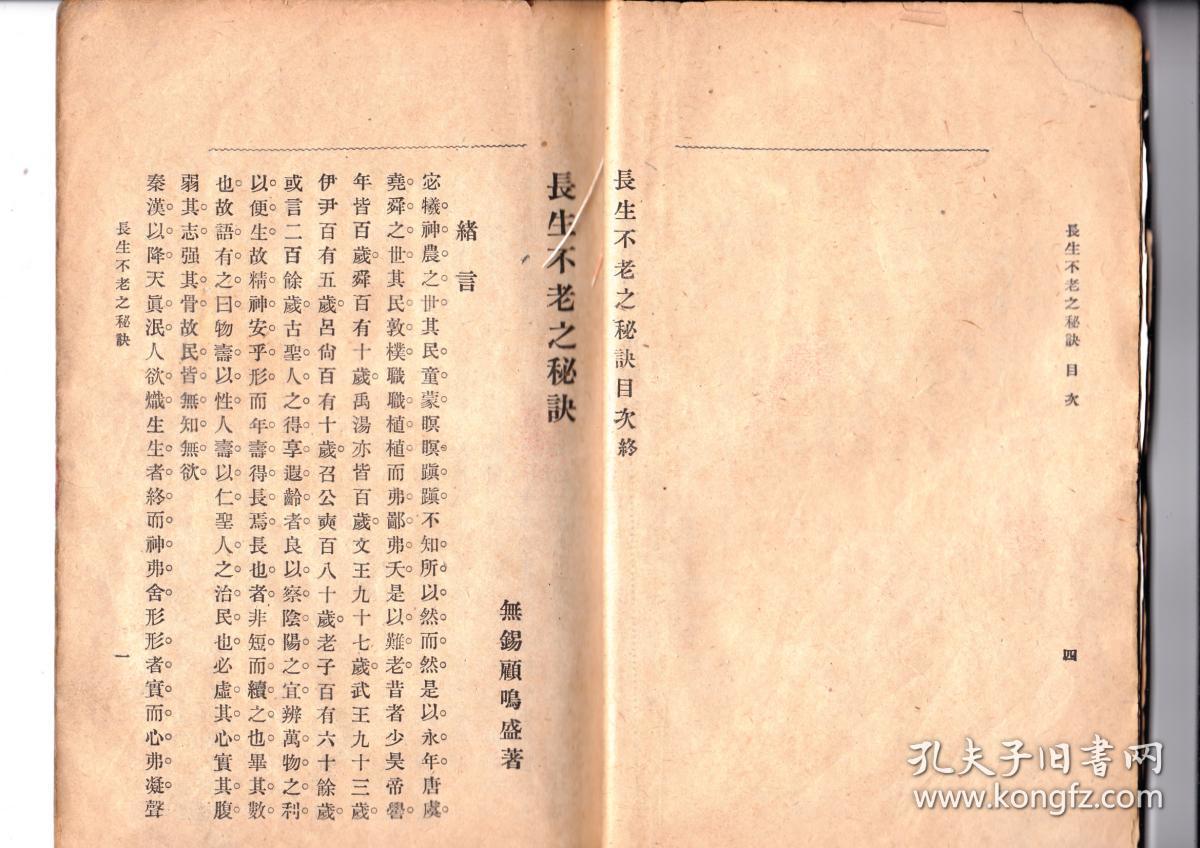 長生不老之秘訣 目次
四
長生不老之秘訣目次終
長生不老之秘訣
無錫顧鳴盛著
緒言
宓犧神農之世其民童蒙暝暝蹎蹎不知所以然而然是以永年唐虞
堯舜之世其民敦樸職職植植而弗鄙弗夭是以難老昔者少昊帝嚳
年皆百歲舜百有十歲禹湯亦皆百歲文王九十七歲武王九十三歲
伊尹百有五歲呂尙百有十歲召公奭百八十歲老子百有六十餘歲
或言二百餘歲古聖人之得享遐齡者良以察陰陽之宜辨萬物之利
以便生故精神安乎形而年壽得長焉長也者非短而續之也畢其數
也故語有之曰物壽以性人壽以仁聖人之治民也必虛其心實其腹
弱其志强其骨故民皆無知無欲
秦漢以降天眞泯人欲熾生生者終而神弗舍形形者實而心弗凝聲
長生不老之秘訣
一
孔夫子旧书网
www.kongfz.com